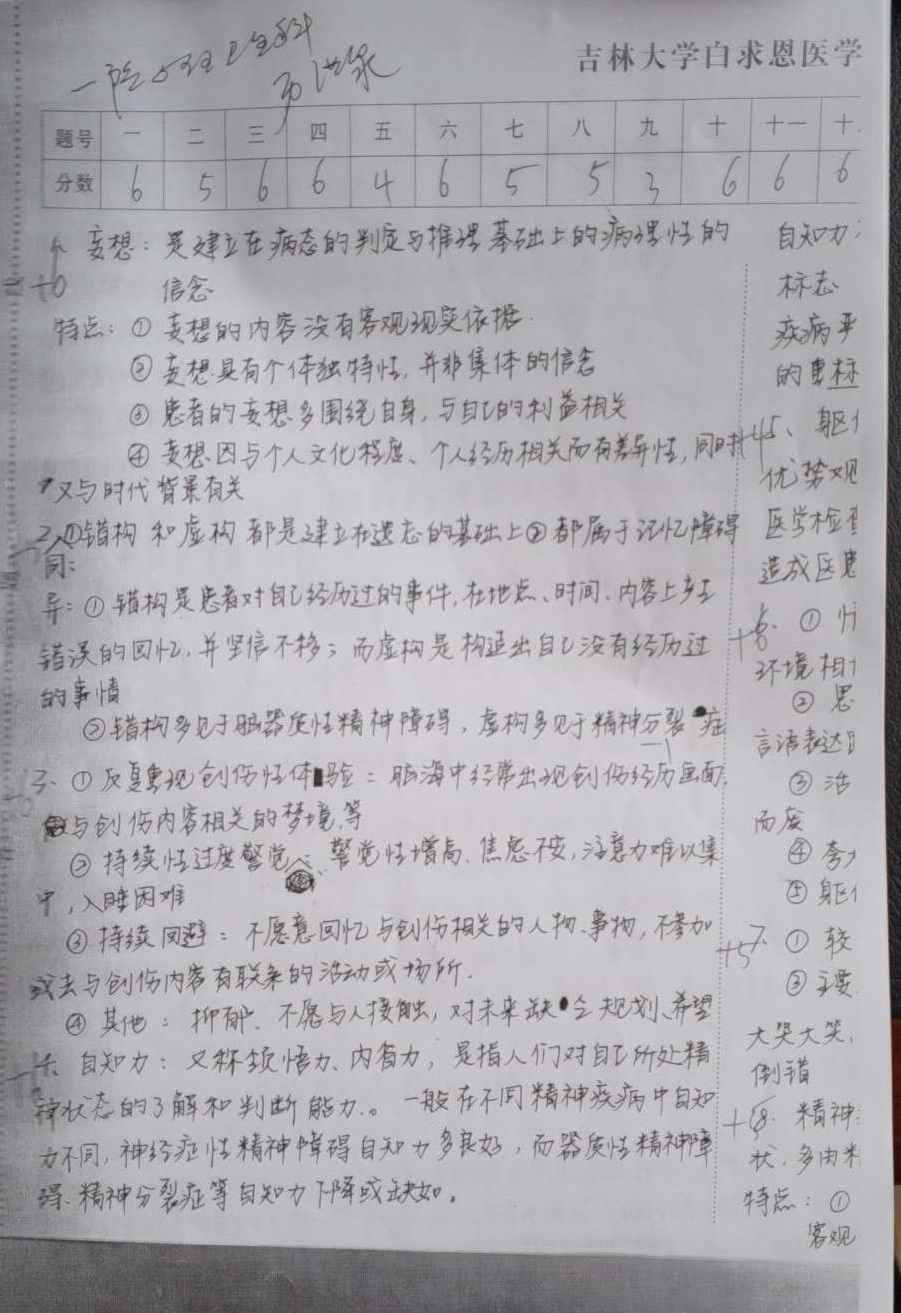 一院 心理卫生科
吉林大学白求恩医学
题号 一 二 三 四 五 六 七 八 九 十 十一 十
分数 6 5 6 6 4 6 5 5 3 6 6 6
1、妄想：是建立在病态的判定与推理基础上的病理性的
信念
特点：① 妄想的内容没有客观现实依据.
② 妄想具有个体独特性，并非集体的信念
③ 患者的妄想多围绕自身，与自己的利益相关
④ 妄想因与个人文化程度、个人经历相关而有差异性，同时
又与时代背景有关
2、①错构和虚构都是建立在遗忘的基础上②都属于记忆障碍
同：
异：① 错构是患者对自己经历过的事件，在地点、时间、内容上产生
错误的回忆，并坚信不移；而虚构是构造出自己没有经历过
的事情
②错构多见于脑器质性精神障碍，虚构多见于精神分裂症
3、① 反复重现创伤性体验：脑海中经常出现创伤经历画面，
与创伤内容相关的梦境，等
② 持续性过度警觉：警觉性增高、焦虑不安，注意力难以集
中，入睡困难
③ 持续回避：不愿意回忆与创伤相关的人物、事物，不参加
或去与创伤内容有联系的活动或场所.
④ 其他：抑郁、不愿与人接触，对未来缺乏规划、希望
自知力：又称领悟力、内省力，是指人们对自己所处精
神状态的了解和判断能力。一般在不同精神疾病中自知
力不同，神经症性精神障碍自知力多良好，而器质性精神障
碍、精神分裂症等自知力下降或缺如。
自知力
标志
疾病平
的重标
+4 5、躯
优势观
医学检查
造成医患
+6 6、①
环境相
② 思
言语表达
③ 活
而废
④ 夸大
⑤ 躯
+5 7、① 较
② 主要
大哭大笑，
倒错
8、精神
状，多由
特点：①
客观